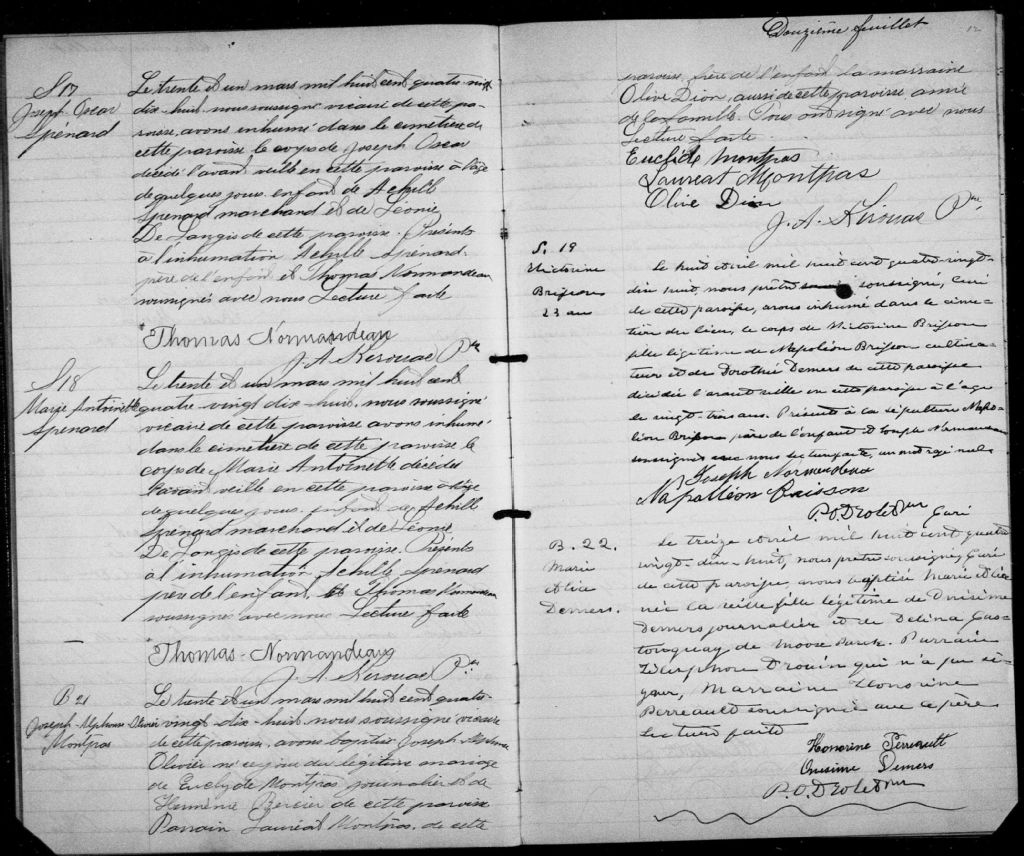 S 17
Joseph Oscar
Spénard
Le trente et un mars mil huit cent quatre vingt
dix-huit, nous soussigné vicaire de cette pa-
roisse, avons inhumé dans le cimetière de
cette paroisse le corps de Joseph Oscar
décédé l'avant veille en cette paroisse à l'âge
de quelques jours enfant de Achille
Spénard marchand et de Léonie
De Langis de cette paroisse. Présents
à l'inhumation Achille Spénard
père de l'enfant et Thomas Normandeau
soussignés avec nous Lecture faite
Thomas Normandeau
J. A. Kerouac Ptre
S 18
Marie Antoinette
Spénard
Le trente et un mars mil huit cent
quatre-vingt dix-huit, nous soussigné
vicaire de cette paroisse avons inhumé
dans le cimetière de cette paroisse le
corps de Marie Antoinette décédée
l'avant veille en cette paroisse à l'âge
de quelques jours enfant de Achille
Spénard marchand et de Léonie
De Langis de cette paroisse. Présents
à l'inhumation Achille Spénard
père de l'enfant, et Thomas Normandeau
soussignés avec nous Lecture faite
Thomas Normandeau
J. A. Kerouac Ptre
B 21
Joseph-Alphonse-Olivier
Montpas
Le trente et un mars mil huit cent quatre
vingt dix-huit nous soussigné vicaire
de cette paroisse, avons baptisé Joseph Alphonse
Olivier né ce jour du légitime mariage
de Euclyde Montpas journalier et de
Herménie Bercier de cette paroisse
Parrain Lauréat Montpas, de cette
Douzième feuillet
12
paroisse, frère de l'enfant la marraine
Olive Dion, aussi de cette paroisse, amie
de la famille. Tous ont signé avec nous
Lecture faite
Euclide Montpas
Lauréat Montpas
Olive Dion
J. A. Kerouac Ptre
S. 19
Victorine
Brisson
23 ans
Le huit Avril mil huit cent quatre-vingt-
dix huit, nous prêtre soussigné, Curé
de cette paroisse, avons inhumé dans le cime-
tière du lieu, le corps de Victorine Brisson
fille légitime de Napoléon Brisson cultiva-
teur et de Dorothée Demers de cette paroisse
décédée l'avant veille en cette paroisse à l'age
de vingt-trois ans. Présents à la sépulture Napo-
léon Brisson père de l'enfant et Joseph Normandeau
soussignés avec nous
Joseph Normendeau
Napolléon Brisson
P. O. Drolet Ptre Curé
B. 22.
Marie
Alice
Demers.
Le treize Avril mil huit cent quatre
vingt-dix-huit, nous prêtre soussigné, Curé
de cette paroisse, avons baptisé Marie Alice
née la veille fille légitime de Onésime
Demers journalier et de Delina Gas-
tonguay de Moose Park. Parrain
Télesphore Drouin qui n'a pu si-
gner, Marraine Honorine
Perreault soussignée avec le père
Lecture faite
Honorine Perreault
Onésime Demers
P. O. Drolet Ptre